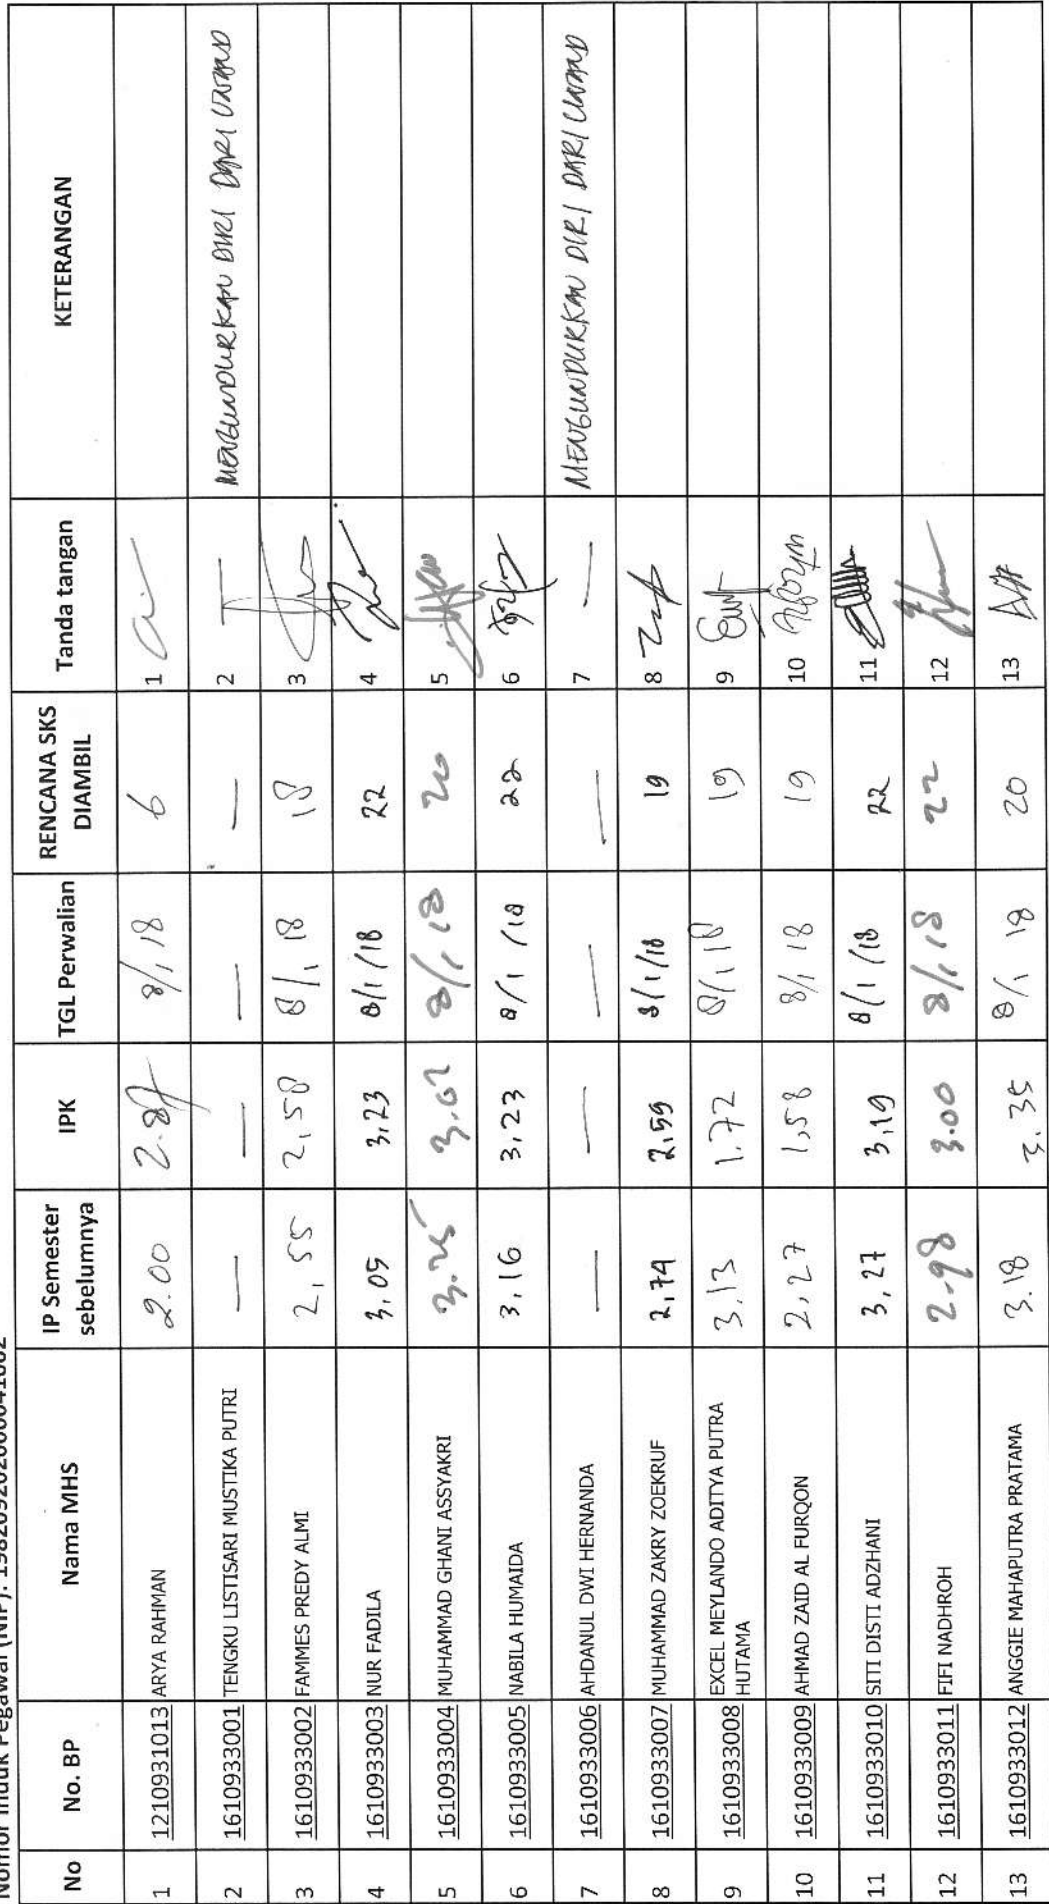 No | No. BP | Nama MHS | IP Semester sebelumnya | IPK | TGL Perwalian | RENCANA SKS DIAMBIL | Tanda tangan | KETERANGAN
1 | 1210931013 | ARYA RAHMAN | 2.00 | 2.87 | 8/1 18 | 6 | 1
2 | 1610933001 | TENGKU LISTISARI MUSTIKA PUTRI | — | — | — | — | 2 — | MENGUNDURKAN DIRI DARI UNAND
3 | 1610933002 | FAMMES PREDY ALMI | 2,55 | 2,58 | 8/1 18 | 18 | 3
4 | 1610933003 | NUR FADILA | 3,05 | 3,23 | 8/1/18 | 22 | 4
5 | 1610933004 | MUHAMMAD GHANI ASSYAKRI | 3.25 | 3.02 | 8/1 18 | 20 | 5
6 | 1610933005 | NABILA HUMAIDA | 3,16 | 3,23 | 8/1/18 | 22 | 6
7 | 1610933006 | AHDANUL DWI HERNANDA | — | — | — | — | 7 — | MENGUNDURKAN DIRI DARI UNAND
8 | 1610933007 | MUHAMMAD ZAKRY ZOEKRUF | 2,74 | 2,59 | 8/1/18 | 19 | 8
9 | 1610933008 | EXCEL MEYLANDO ADITYA PUTRA HUTAMA | 3,13 | 1.72 | 8/1 18 | 19 | 9
10 | 1610933009 | AHMAD ZAID AL FURQON | 2,27 | 1,58 | 8/1 18 | 19 | 10
11 | 1610933010 | SITI DISTI ADZHANI | 3,27 | 3,19 | 8/1/18 | 22 | 11
12 | 1610933011 | FIFI NADHROH | 2.98 | 3.00 | 8/1/18 | 22 | 12
13 | 1610933012 | ANGGIE MAHAPUTRA PRATAMA | 3.18 | 3.35 | 8/1 18 | 20 | 13